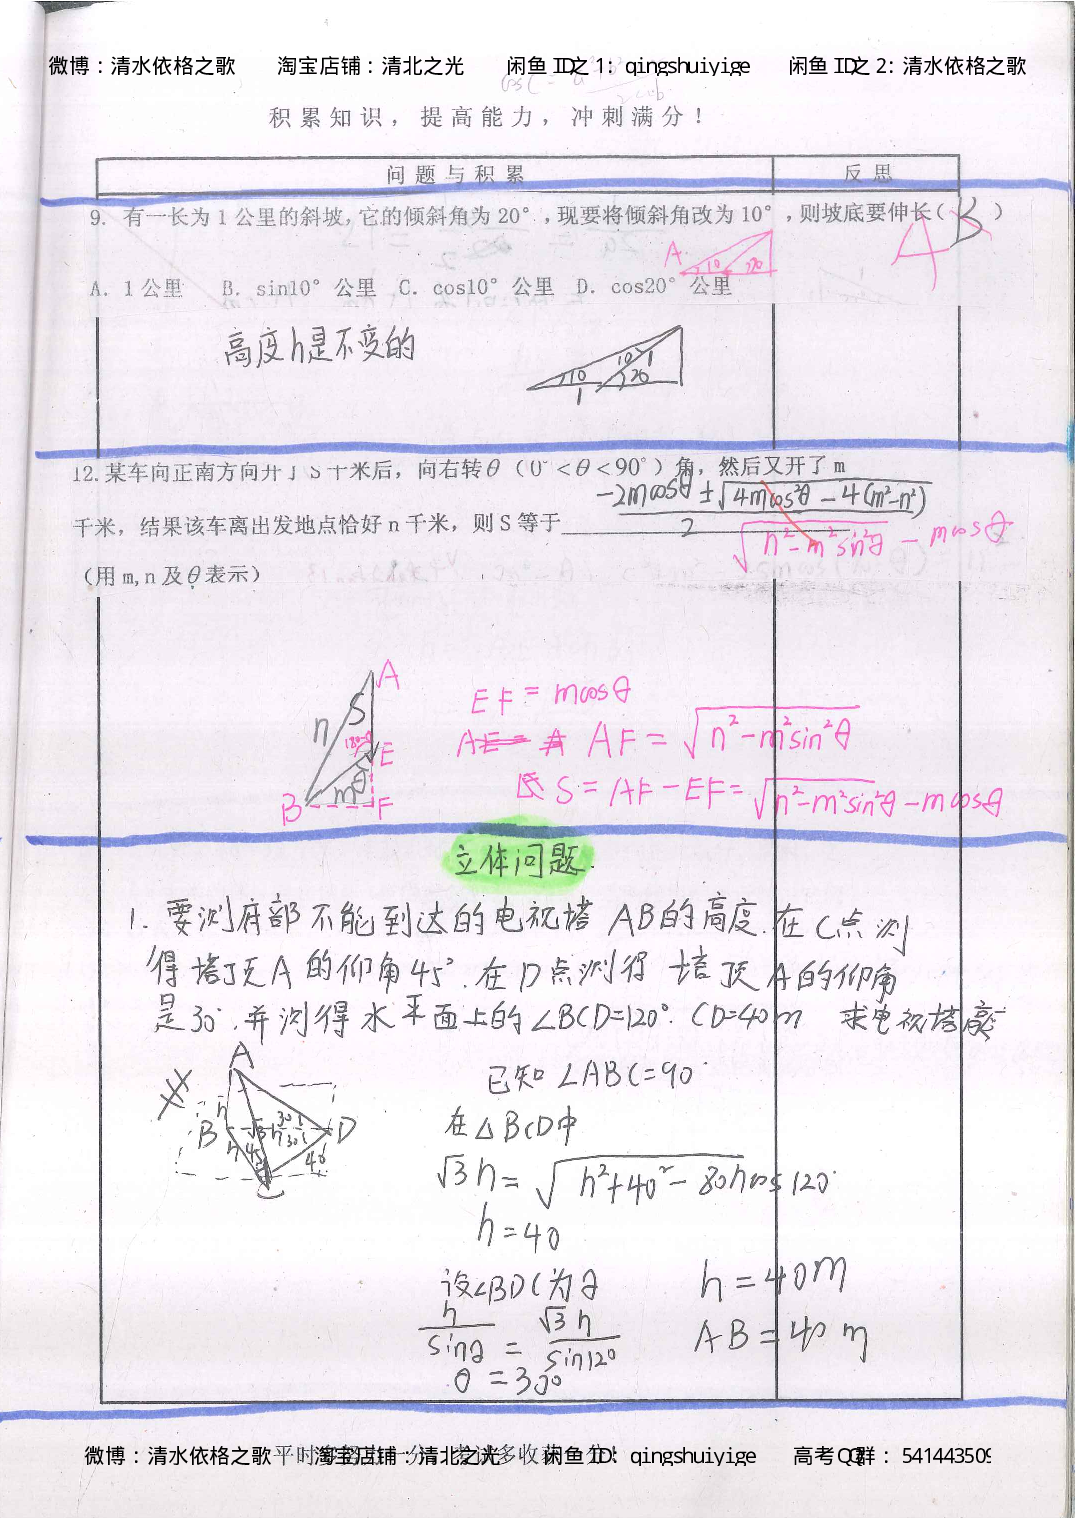 微博：清水依格之歌 淘宝店铺：清北之光 闲鱼 ID 之 1: qingshuiyige 闲鱼 ID 之 2: 清水依格之歌
积累知识，提高能力，冲刺满分！
问题与积累 反思
9. 有一长为 1 公里的斜坡，它的倾斜角为 20°，现要将倾斜角改为 10°，则坡底要伸长( B ) A
A. 1 公里 B. sin10° 公里 C. cos10° 公里 D. cos20° 公里
A. 10 20
高度h是不变的
10 10 1 20
1
12. 某车向正南方向开了 S 千米后，向右转θ（0°<θ<90°）角，然后又开了 m
-2mcosθ ± √4mcos²θ - 4(m²-n²)
千米，结果该车离出发地点恰好 n 千米，则 S 等于
2
√n²-m²sin²θ - mcosθ
（用 m,n 及θ表示）
A
S
n
180-θ
E
θ
m
B F
EF = mcosθ
AF = √n²-m²sin²θ
S = AF - EF = √n²-m²sin²θ - mcosθ
立体问题.
1. 要测底部不能到达的电视塔 AB的高度.在C点测
得塔顶A的仰角45°.在D点测得 塔顶A的仰角
是30°.并测得水平面上的∠BCD=120°. CD=40m 求电视塔高度
A
h
B √3h 30° D
h 45° 40
C
已知 ∠ABC=90°
在△BCD中
√3h = √h²+40²-80hcos120°
h=40
设∠BDC为θ
h/sinθ = √3h/sin120
θ=30°
h=40m
AB=40m
微博：清水依格之歌 淘宝店铺：清北之光 闲鱼 ID: qingshuiyige 高考QQ群：541443509